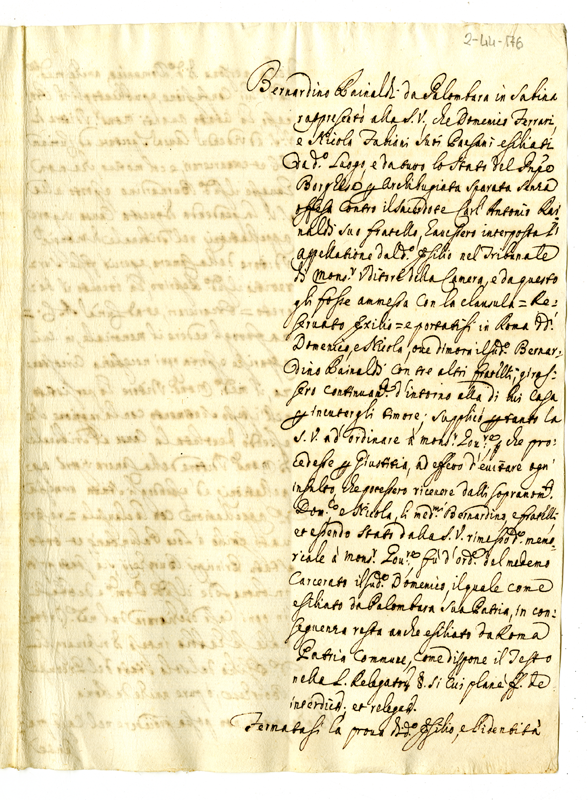 2-44-176
Bernardino Rainaldi da Palombara in Sabina
rappresentò alla S.V. che Domenico Ferrari,
e Nicola Fabiani suoi Paesani esiliati
da d.o Luogo, e da tutto lo Stato del
Borghese p Archibugiata sparata senza
offesa contro il Sacerdote Carl' Antonio Rai
naldi suo fratello, havessero interposta l'
appellatione dal d.o Esilio nel Tribunale
di Mons.r Uditore della Camera, e da questo
gli fosse ammessa con la clausula = Re=
servato Exilio = e portatisi in Roma dd.i
Domenico, e Nicola, ove dimora il sud.o Bernar-
dino Rainaldi con tre altri fratelli, giras-
sero continuam.te d'intorno alla di lui Casa
p incutergli timore; supplicò p tanto la
S.V. ad ordinare à mons.r Gov.re che pro-
cedesse p Giustitia, ad effetto d'evitare ogn'
insulto, che potessero ricevere dalli sopranom.ti
Dom.co e Nicola, li med.mi Bernardino, e fratelli
et essendo stato dalla S.V. rimesso d.o memo-
riale à Mons.r Gov.re fù d'ord.e del medemo
Carcerato il sud.o Domenico, il quale come
esiliato da Palombara sua Patria, in con-
seguenza resta anche esiliato da Roma
Patria Commune, come dispone il Testo
nella L. Relegator. §. si cui plane ff. de
interdict. et relegat.
Fermatasi la prova di d.o Esilio, e l'identità